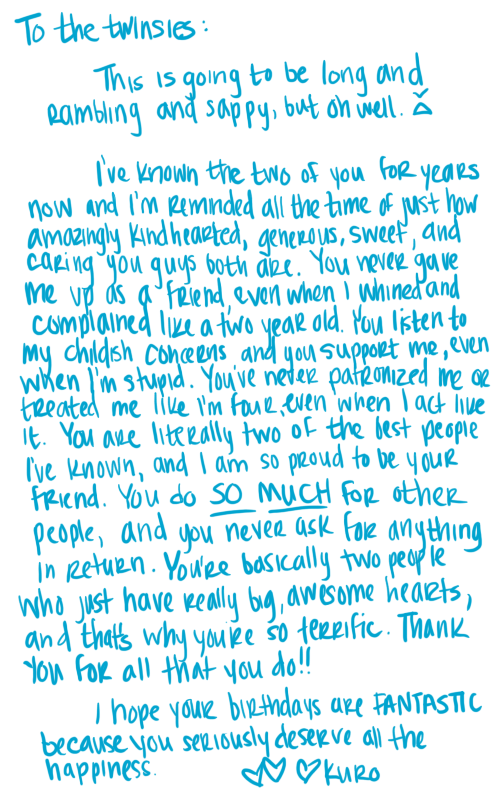 To the twinsies:
This is going to be long and
rambling and sappy, but oh well.
I've known the two of you for years
now and I'm reminded all the time of just how
amazingly kindhearted, generous, sweet, and
caring you guys both are. You never gave
me up as a friend, even when I whined and
complained like a two year old. You listen to
my childish concerns and you support me, even
when I'm stupid. You've never patronized me or
treated me like I'm four, even when I act like
it. You are literally two of the best people
I've known, and I am so proud to be your
friend. You do SO MUCH for other
people, and you never ask for anything
in return. You're basically two people
who just have really big, awesome hearts,
and that's why you're so terrific. Thank
you for all that you do!!
I hope your birthdays are FANTASTIC
because you seriously deserve all the
happiness. ♡♡ ♡ KURO